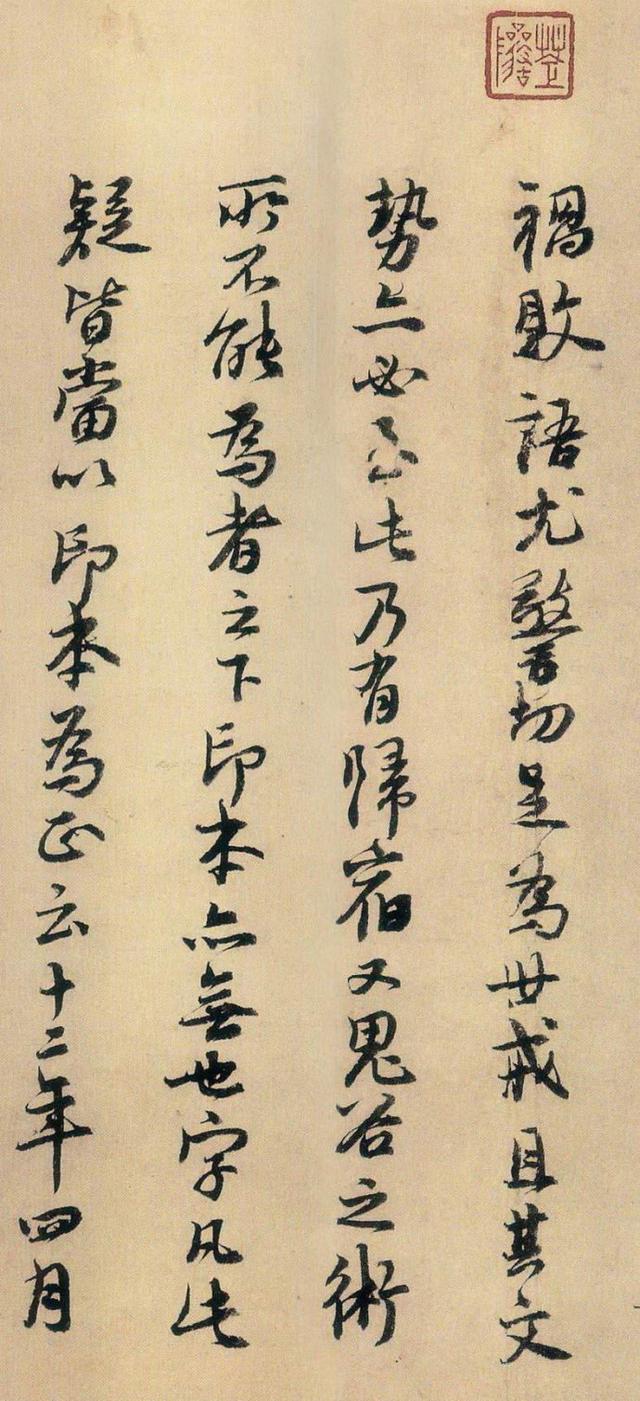 禍敗語尤警切足為世戒且其文
勢亦必至此乃有歸宿又鬼谷之術
所不能為者之下印本亦無也字凡此
疑皆當以印本為正云十二年四月